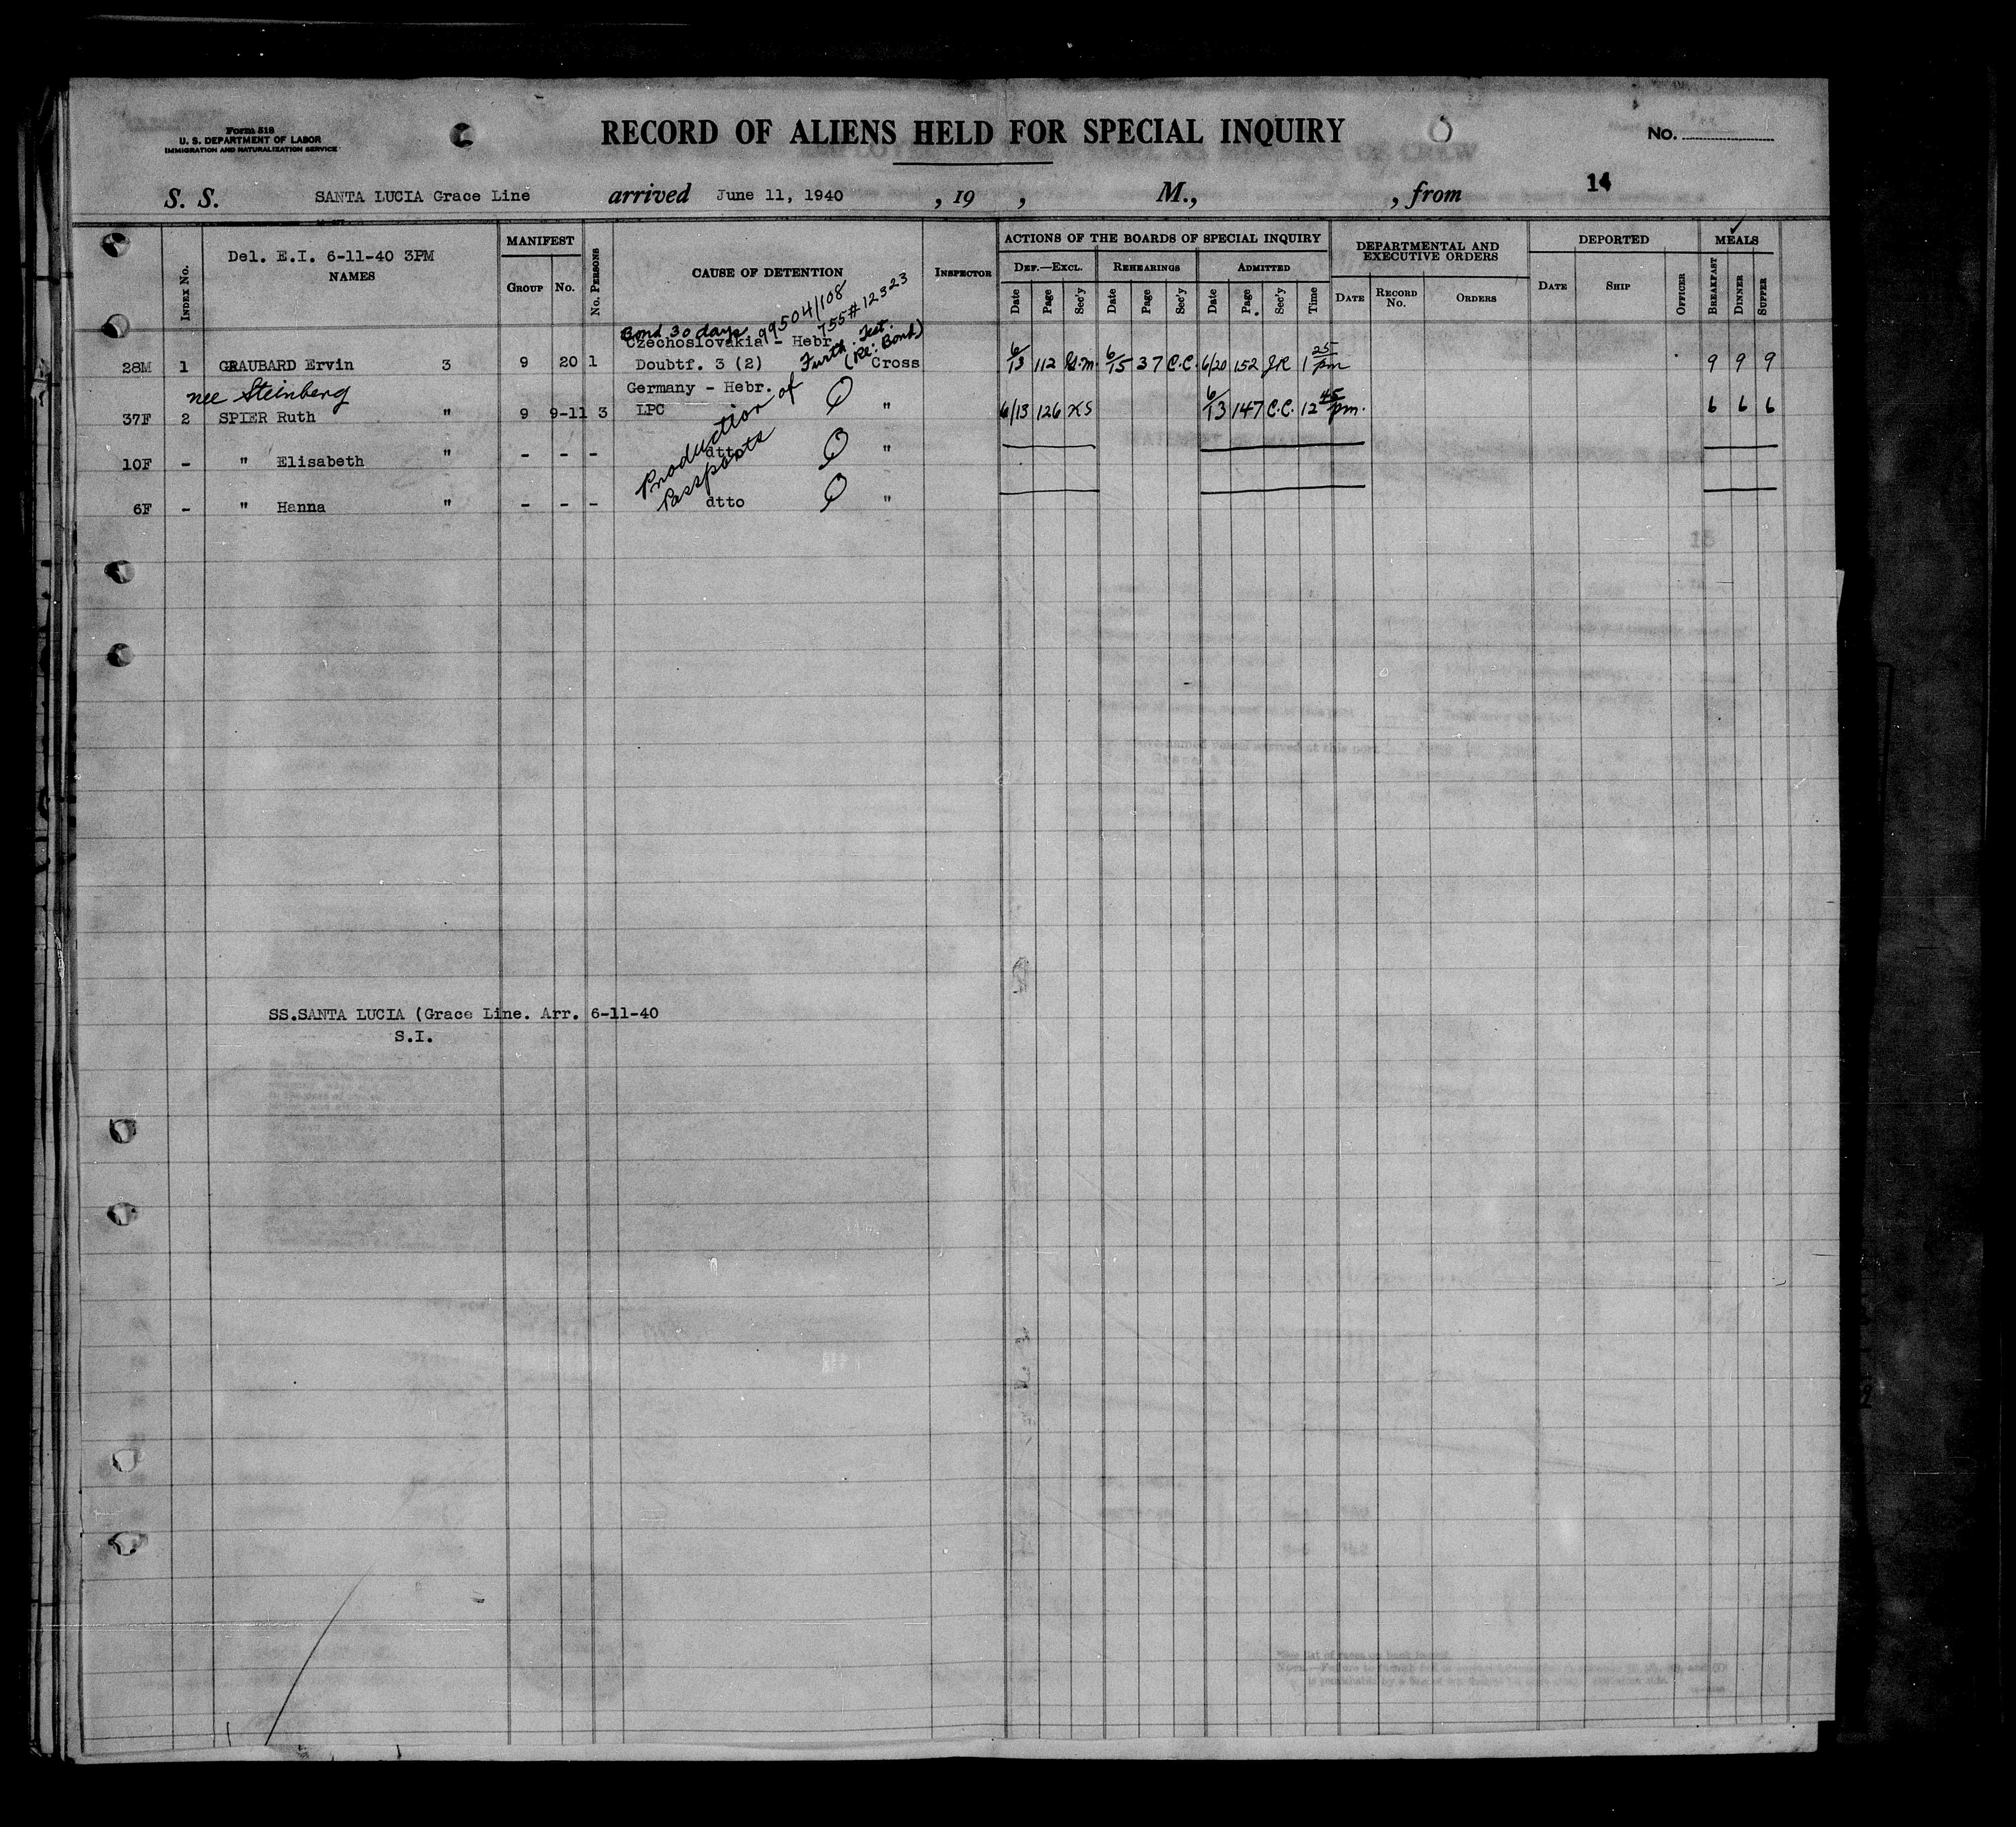 Form 518
U. S. DEPARTMENT OF LABOR
IMMIGRATION AND NATURALIZATION SERVICE
RECORD OF ALIENS HELD FOR SPECIAL INQUIRY
No.
14
S. S. SANTA LUCIA Grace Line arrived June 11, 1940 , 19 , M., , from
Index No.
Del. E.I. 6-11-40 3PM
NAMES
MANIFEST
Group No.
No. Persons
CAUSE OF DETENTION
Inspector
ACTIONS OF THE BOARDS OF SPECIAL INQUIRY
Def.—Excl. Rehearings Admitted
Date Page Sec'y Date Page Sec'y Date Page Sec'y Time
DEPARTMENTAL AND EXECUTIVE ORDERS
Date Record No. Orders
DEPORTED
Date Ship Officer
MEALS
Breakfast Dinner Supper
Bond 30 days 99504/108
755#12323
Czechoslovakia - Hebr. Furth. Test.
(Re: Bond)
28M 1 GRAUBARD Ervin 3 9 20 1 Doubtf. 3 (2) Cross 6/13 112 6/15 37 C.C. 6/20 152 JR 1 25 pm 9 9 9
nee Steinberg
Germany - Hebr.
37F 2 SPIER Ruth " 9 9-11 3 LPC " 6/13 126 KS 6/13 147 C.C. 12 45 pm. 6 6 6
Production of
Passports
10F - " Elisabeth " - - - dtto "
6F - " Hanna " - - - dtto "
SS.SANTA LUCIA (Grace Line. Arr. 6-11-40
S.I.